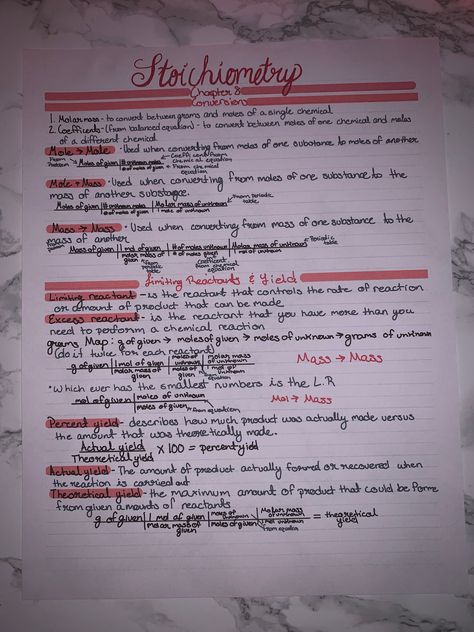 Stoichiometry
Chapter 8
Conversions
1. Molar mass - to convert between grams and moles of a single chemical
2. Coefficients - (from balanced equation) - to convert between moles of one chemical and moles
of a different chemical.
Mole → Mole · Used when converting from moles of one substance to moles of another
From problem Moles of given | # unknown moles Coefficient from chemical equation
# of moles given From chemical equation
Mole → Mass · Used when converting from moles of one substance to the
mass of another substance.
Moles of given | # of moles unknown | Molar mass of unknown From periodic table
# of moles of given | 1 mole of unknown
Mass → Mass · Used when converting from mass of one substance to the
mass of another
Mass of given | 1 mol of given | # of moles unknown | Molar mass of unknown Periodic table
molar mass of given | # of moles given | 1 mol of unknown
From periodic table Coefficient from chemical equation
Limiting Reactants & Yield
Limiting reactant - is the reactant that controls the rate of reaction
or amount of product that can be made
Excess reactant - is the reactant that you have more than you
need to perform a chemical reaction
grams Map: g of given → moles of given → moles of unknown → grams of unknown
(do it twice for each reactant)
g of given | 1 mol of given | moles of unknown | molar mass of unknown
molar mass of given | moles of given | 1 mol of unknown
from equation
Mass → Mass
· Which ever has the smallest numbers is the L.R
mol of given | moles of unknown
moles of given from equation
Mol → Mass
Percent yield - describes how much product was actually made versus
the amount that was theoretically made.
Actual yield
Theoretical yield × 100 = percent yield
Actual yield - The amount of product actually formed or recovered when
the reaction is carried out
Theoretical yield - the maximum amount of product that could be forme
from given amounts of reactants
g of given | 1 mol of given | moles of unknown | Molar mass of unknown = theoretical yield
molar mass of given | moles of given | 1 mol unknown
from equation